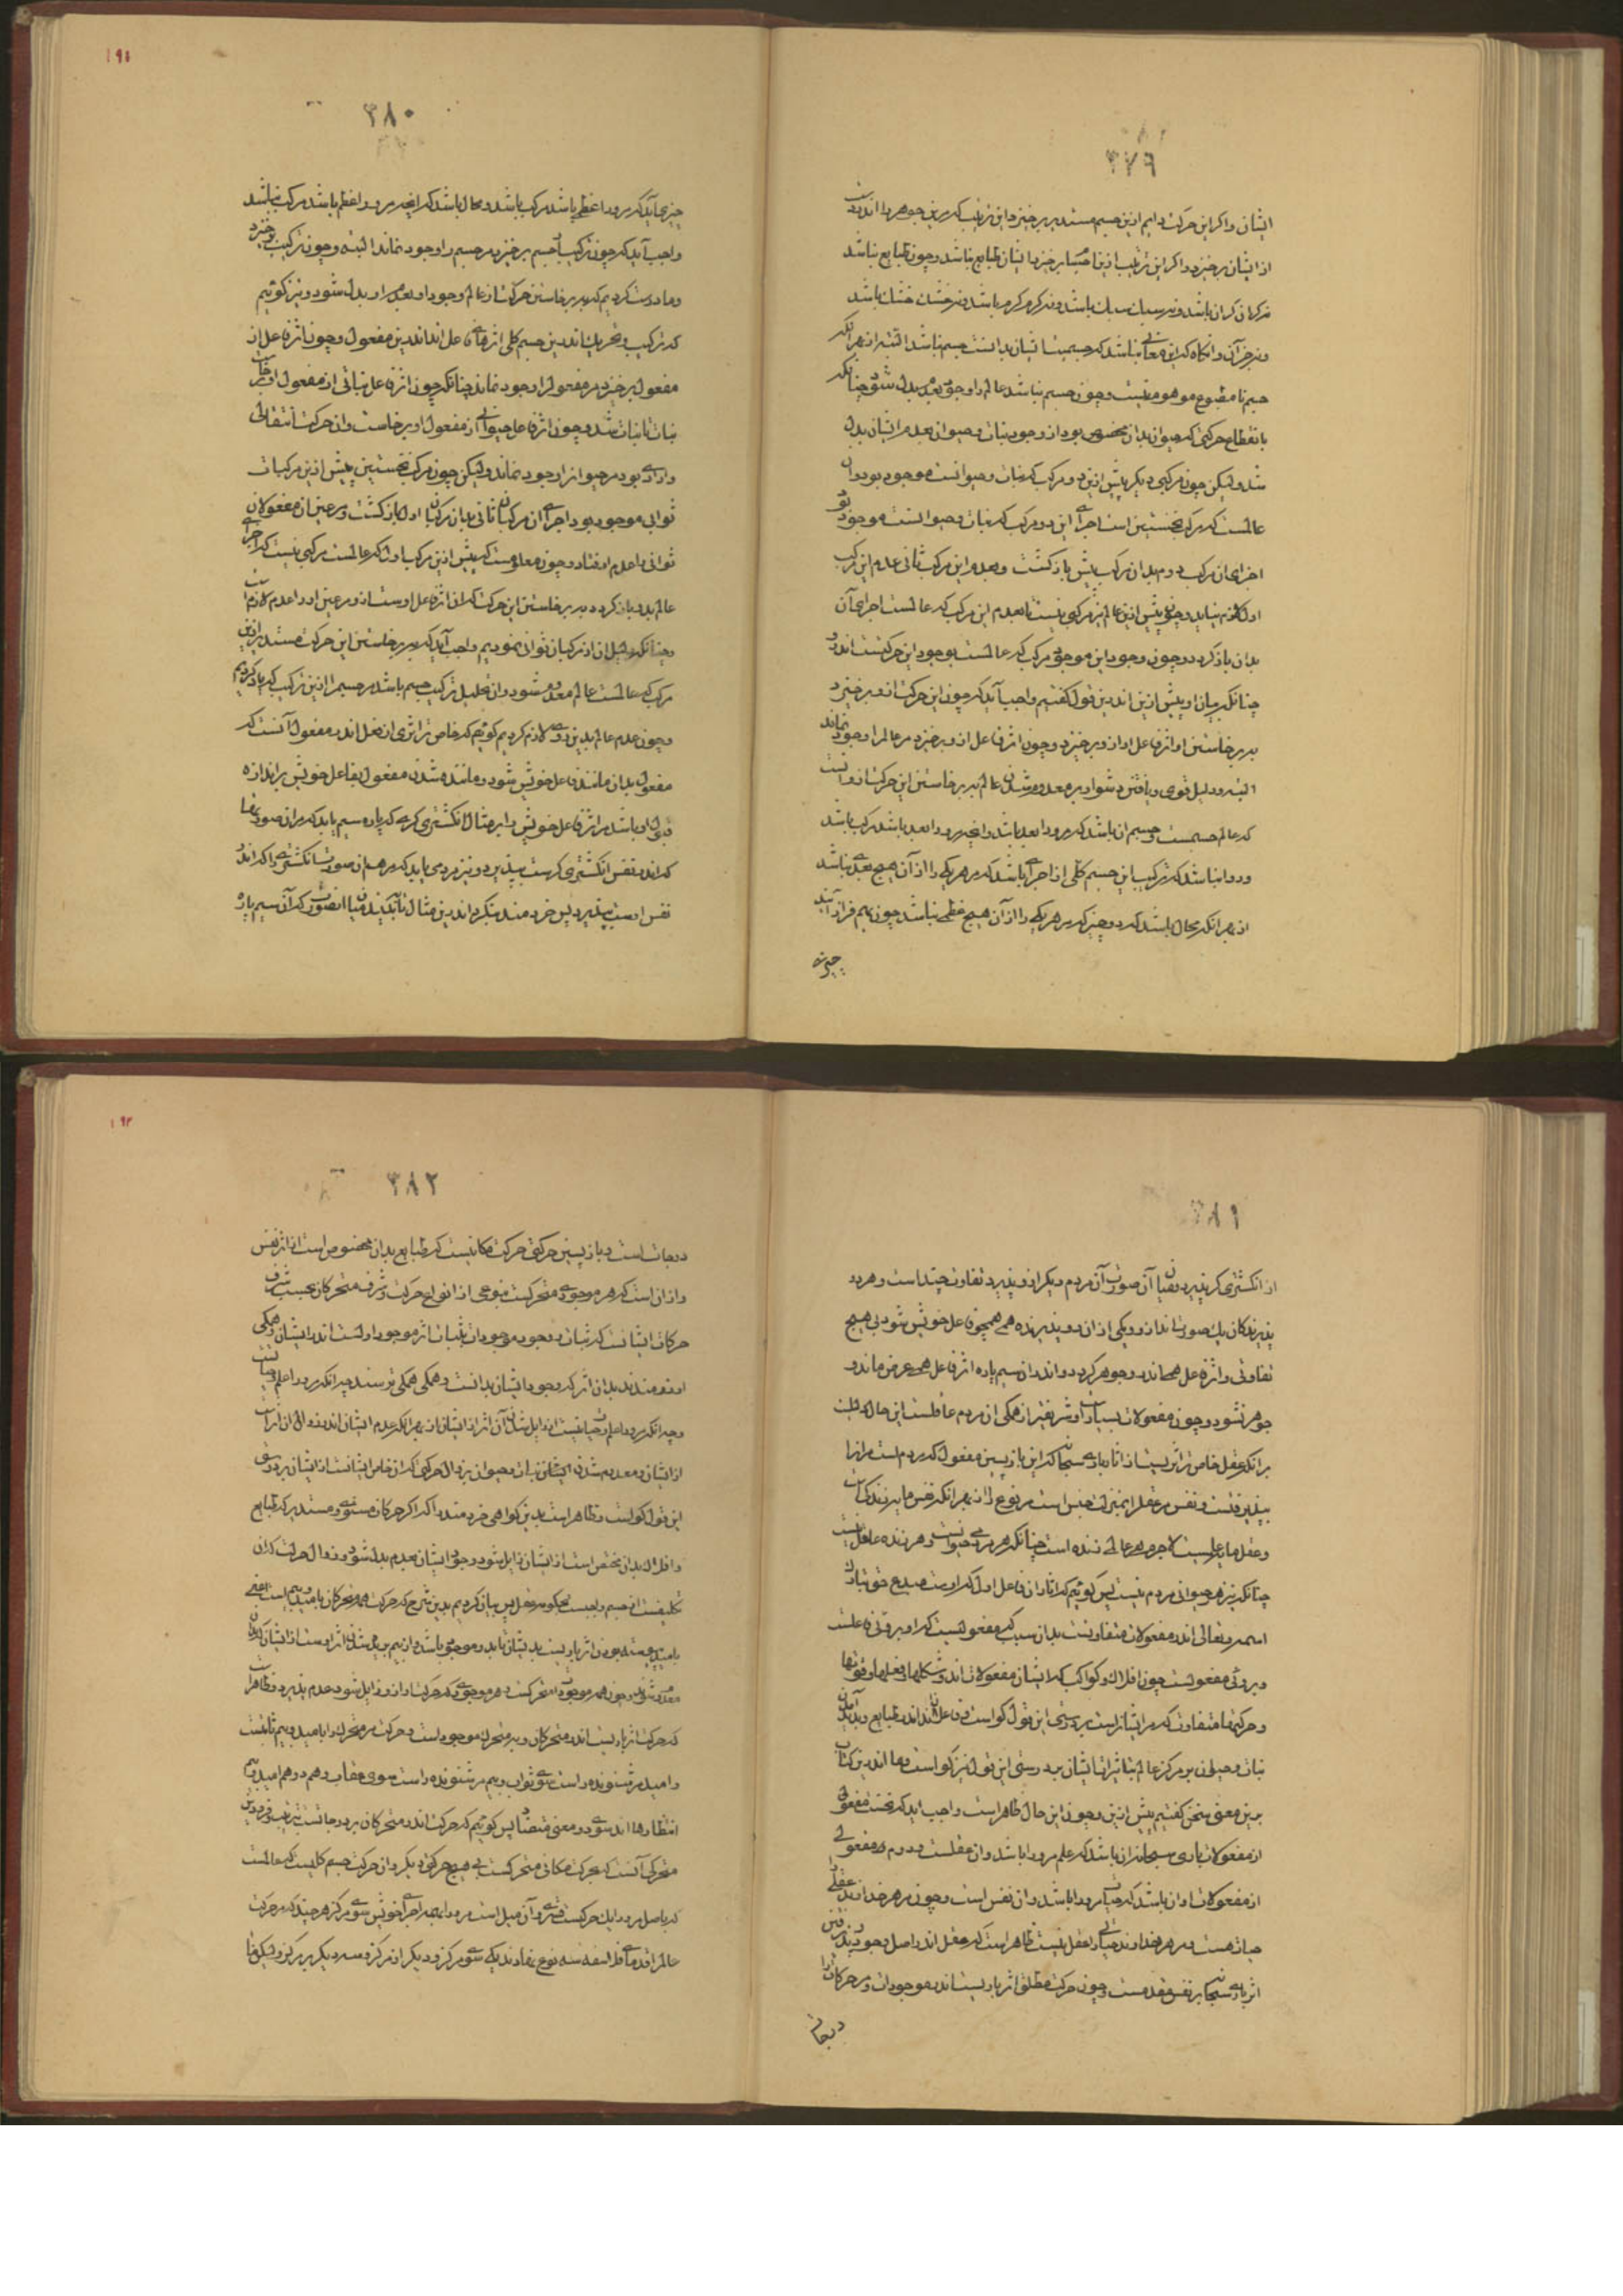 ٣٧٩
ایشان واکر این حرکت دایم ازین جسم مستدیر برخیزد این ترتیب که برین جوهر و اندرست
از ایشان برخیزد و اکر این ترتیب ازین برخیزد ایشان طبایع نباشد و چون طبایع نباشد
نه کران کران باشد و نه سبک سبک باشد و نه کرم کرم باشد و نه خشک خشک باشد
و نه جز آن و انکاه که این معانی نباشد که جسمیت ایشان بدانست جسم نباشد البته از بهر آنکه
جسم نا مطبوع موهوم نیست و چون جسم نباشد عالم را وجود بعدم بدل شود چنانکه
بانقطاع حرکتی که حیوان بدان مخصوص بود از وجود نبات و حیوان بعدم ایشان بدل
شد ولیکن چون مرکبی دیکر پیش ازین دو مرکب که نبات و حیوانست موجود بود و آن
عالمست که مرکب نخستین است اجزای این دو مرکب که نبات و حیوانست موجود بود
اجزای آن مرکب دوم بدان مرکب پیش باز کشت و بعدم این مرکب ثانی عدم این مرکب
اول لازم نیاید و چون پیش ازین عالم نیز مرکبی نیست تا بعدم این مرکب که عالمست اجزای آن
بدان باز کردد و چون وجود این موجود مرکب که عالمست بوجود این حرکتست اندرو
چنانکه بیان او پیش ازین اندرین قول کفتیم واجب آید که چون این حرکت ازو برخیزد
به برخاستن او اثر فاعل او ازو برخیزد و چون اثر فاعل ازو برخیزد مر عالم را وجود نماند
البته و دلیل قوی و یافتن دشوار بر معدوم شدن عالم به برخاستن این حرکت ازو آنست
که عالم جسمست و جسم آن باشد که مرورا ابعد باشد و آنچه مرورا ابعد باشد مرکب باشد
و روا نباشد که ترکیب این جسم کلی از اجزای باشد که مر هر یکی را از آن هیچ بعدی نباشد
از بهر آنکه محال باشد که دو چیز که مر هر یکی را از آن هیچ عظمی نباشد چون بهم فراز آیند
چیزی
١٩١
٣٨٠
چیزی آید که مرورا عظم باشد مرکب باشد و محال باشد که آنچه مرورا عظم باشد مرکب نباشد
واجب آید که چون ترکیب از جسم برخیزد مر جسم را وجود نماند البته و چون ترکیب برخیزد
و ما درست کردیم که به برخاستن حرکت از عالم وجود او بعدم او بدل شود و نیز کوئیم
که ترکیب و تحریک اندرین جسم کلی اثرهای فاعل اند اندرین مفعول و چون اثر فاعل از
مفعول برخیزد مر مفعول را وجود نماند چنانکه چون اثر فاعل نباتی از مفعول او برخاست
نبات نا نبات شد و چون اثر فاعل حیوانی از مفعول او برخاست و آن حرکت انتقالی
و ارادی بود مر حیوان را وجود نماند ولیکن چون مرکب نخستین پیش ازین مرکبات
ثوانی موجود بود اجزای آن مرکبات ثانی بدان مرکبات اول باز کشت و مر عین آن مفعولات
ثوانی را عدم اوفتاد و چون معلومست که پیش ازین مرکب اول که عالمست مرکبی نیست که اجزای
عالم بدو باز کردد به برخاستن این حرکت که آن اثر فاعل اوست ازو مر عین او را عدم لازم است
و چنانکه دلیل آن از مرکبات ثوانی نمودیم واجب آید که به برخاستن این حرکت مستدیر ازین
مرکب که عالمست عالم معدوم شود و آن تحلیل ترکیب جسم باشد مر جسم را ازین ترکیب که یاد کردیم
و چون عدم عالم بدین روی لازم کردیم کوئیم که خاص تر اثری از فعل اندر مفعول آنست که
مفعول بدان مانند فاعل خویش شود و مانند شدن مفعول بفاعل خویش بر اندازه
قبول او باشد مر اثر فاعل خویش را بر مثال انکشتری کری که پاره سیم یابد که مر آن صورت را
که اندر نفس انکشتری کرست بپذیرد و نیز مردمی یابد که مر همان صورت انکشتری را که اندر
نفس اوست بپذیرد پس خردمند بنکرد اندرین مثال تا ببیند میان آن صورت که آن سیم پاره
٣٨١
از انکشتری کر پذیرد و میان آن صورت آن مردم دیکر ازو پذیرد تفاوت چند است و هر دو
پذیرندکان یک صورت اند ازو و یکی از آن دو پذیرنده همی همچون فاعل خویش شود بی هیچ
تفاوتی و اثر فاعل همی اندرو جوهر کردد و اندر آن سیم پاره اثر فاعل همی عرض ماند و
جوهر نشود و چون مفعولات بسیارست و شریفتر از همکی آن مردم عاقلست این حال دلیلست
بر آنکه عقل خاص تر اثریست از آثار باری سبحانه که این باز پسین مفعول که مردم است مر آنرا
بپذیرفتست و نفس مر عقل را بمنزلت جنس است مر نوع را از بهر آنکه نفس ما بر زندکیست
و عقل ما بر علمست لاجرم هر عالمی زنده است چنانکه هر مردمی حیوانست و هر زنده عاقل نیست
چنانکه نیز هر حیوانی مردم نیست پس کوئیم که آثار آن فاعل اول که اوست مبدع حق تبارک
اسمه و تعالی اندر مفعولات متفاوتست بدان سبب که مفعول هست که او بروئی فاعلست
و بروئی مفعولست چون افلاک و کواکب که ایشان مفعولات اند و شکلها و فعلها و قوتها
و حرکتها متفاوت که مر ایشانراست بر درستی این قول کواست و فاعلان اند اندر طبایع و پدید آمدن
نبات و حیوان بر مرکز عالم بتاثیرات ایشان بر درستی این قول نیز کواست و ما اندرین کتاب
برین معنی سخن کفتیم پیش ازین و چون این حال ظاهر است واجب آید که نخست مفعولی
از مفعولات باری سبحانه آن باشد که علم مرورا باشد و آن عقلست و دوم مفعولی
از مفعولات او آن باشد که حیات مرورا باشد و آن نفس است و چون مر هر خداوند عقلی را
حیات هست و مر هر خداوند حیاتی را عقل نیست ظاهر است که عقل اندر اصل وجود و پذیرفتن
اثر باری سبحانه بر نفس مقدمست و چون حرکت مطلق اثر باریست اندر موجودات و مر حرکات را
درجات
١٩٢
٣٨٢
درجات است و باز پسین حرکتی حرکت مکانیست که طبایع بدان مخصوص است از اثر نفس
و ازان است که هر موجودی متحرکست بنوعی از انواع حرکت و شرف متحرکان بحسب شرف
حرکات ایشانست که ثبات وجود موجودات بثبات اثر موجود اولست اندر ایشان و همکی
امیدمندند بدان اثر که وجود ایشان بدانست و همکی همی ترسند چه آنکه مرورا علم و حیاتست
و چه آنکه مرورا علم و حیات نیست از زایل شدن آن اثر از ایشان از بهر آنکه عدم ایشان اندر زوال آن اثرست
از ایشان و معدوم شدن ایشان نبات و حیوان بزوال حرکتی که آن خاص ایشانست از ایشان بر درستی
این قول کواست و ظاهر است بدین کواهی خردمند را که اکر حرکات مستوی و مستدیر که طبایع
و افلاک بدان مختص است از ایشان زایل شود وجود ایشان بعدم بدل شود و زوال حرکت که آن
تکلیفست از جسم واجبست بحکم عقل پس بیان کردیم بدین شرح که حرکت همه متحرکان بامید و بیم است اعنی
بامید همیشه بودن اثر باریست بدیشان تا بدو موجود باشند و از بیم بریده شدن اثر اوست از ایشان که بدان
معدوم شوند و چون همه موجودات متحرکست و هر موجودی که حرکت او ازو زایل شود عدم پذیرد و ظاهر است
که حرکت اثر باریست اندر متحرکان و هر متحرک موجود است و حرکت مر متحرک را بامید و بیم ثابتست
و امید مر شنونده راست سوی ثواب و بیم مر شنونده راست سوی عقاب و هم درو هم امید و بیم
انتظارها اند سوی دو معنی متضاد پس کوئیم که حرکت اندر متحرکان بر درجاتست بترتیب و فرودین
متحرکی آنست که بحرکت مکانی متحرکست بی هیچ حرکتی دیکر و آن حرکت جسم کلیست که عالمست
که باصل مرورا یک حرکتست قسری و آن میل است مرورا بهمه اجزای خویش سوی مرکز هر چند که مر حرکت
عالم را قدمای فلاسفه سه نوع نهادند یکی سوی مرکز و دیکر از مرکز و سدیکر بر مرکز ولیکن ما